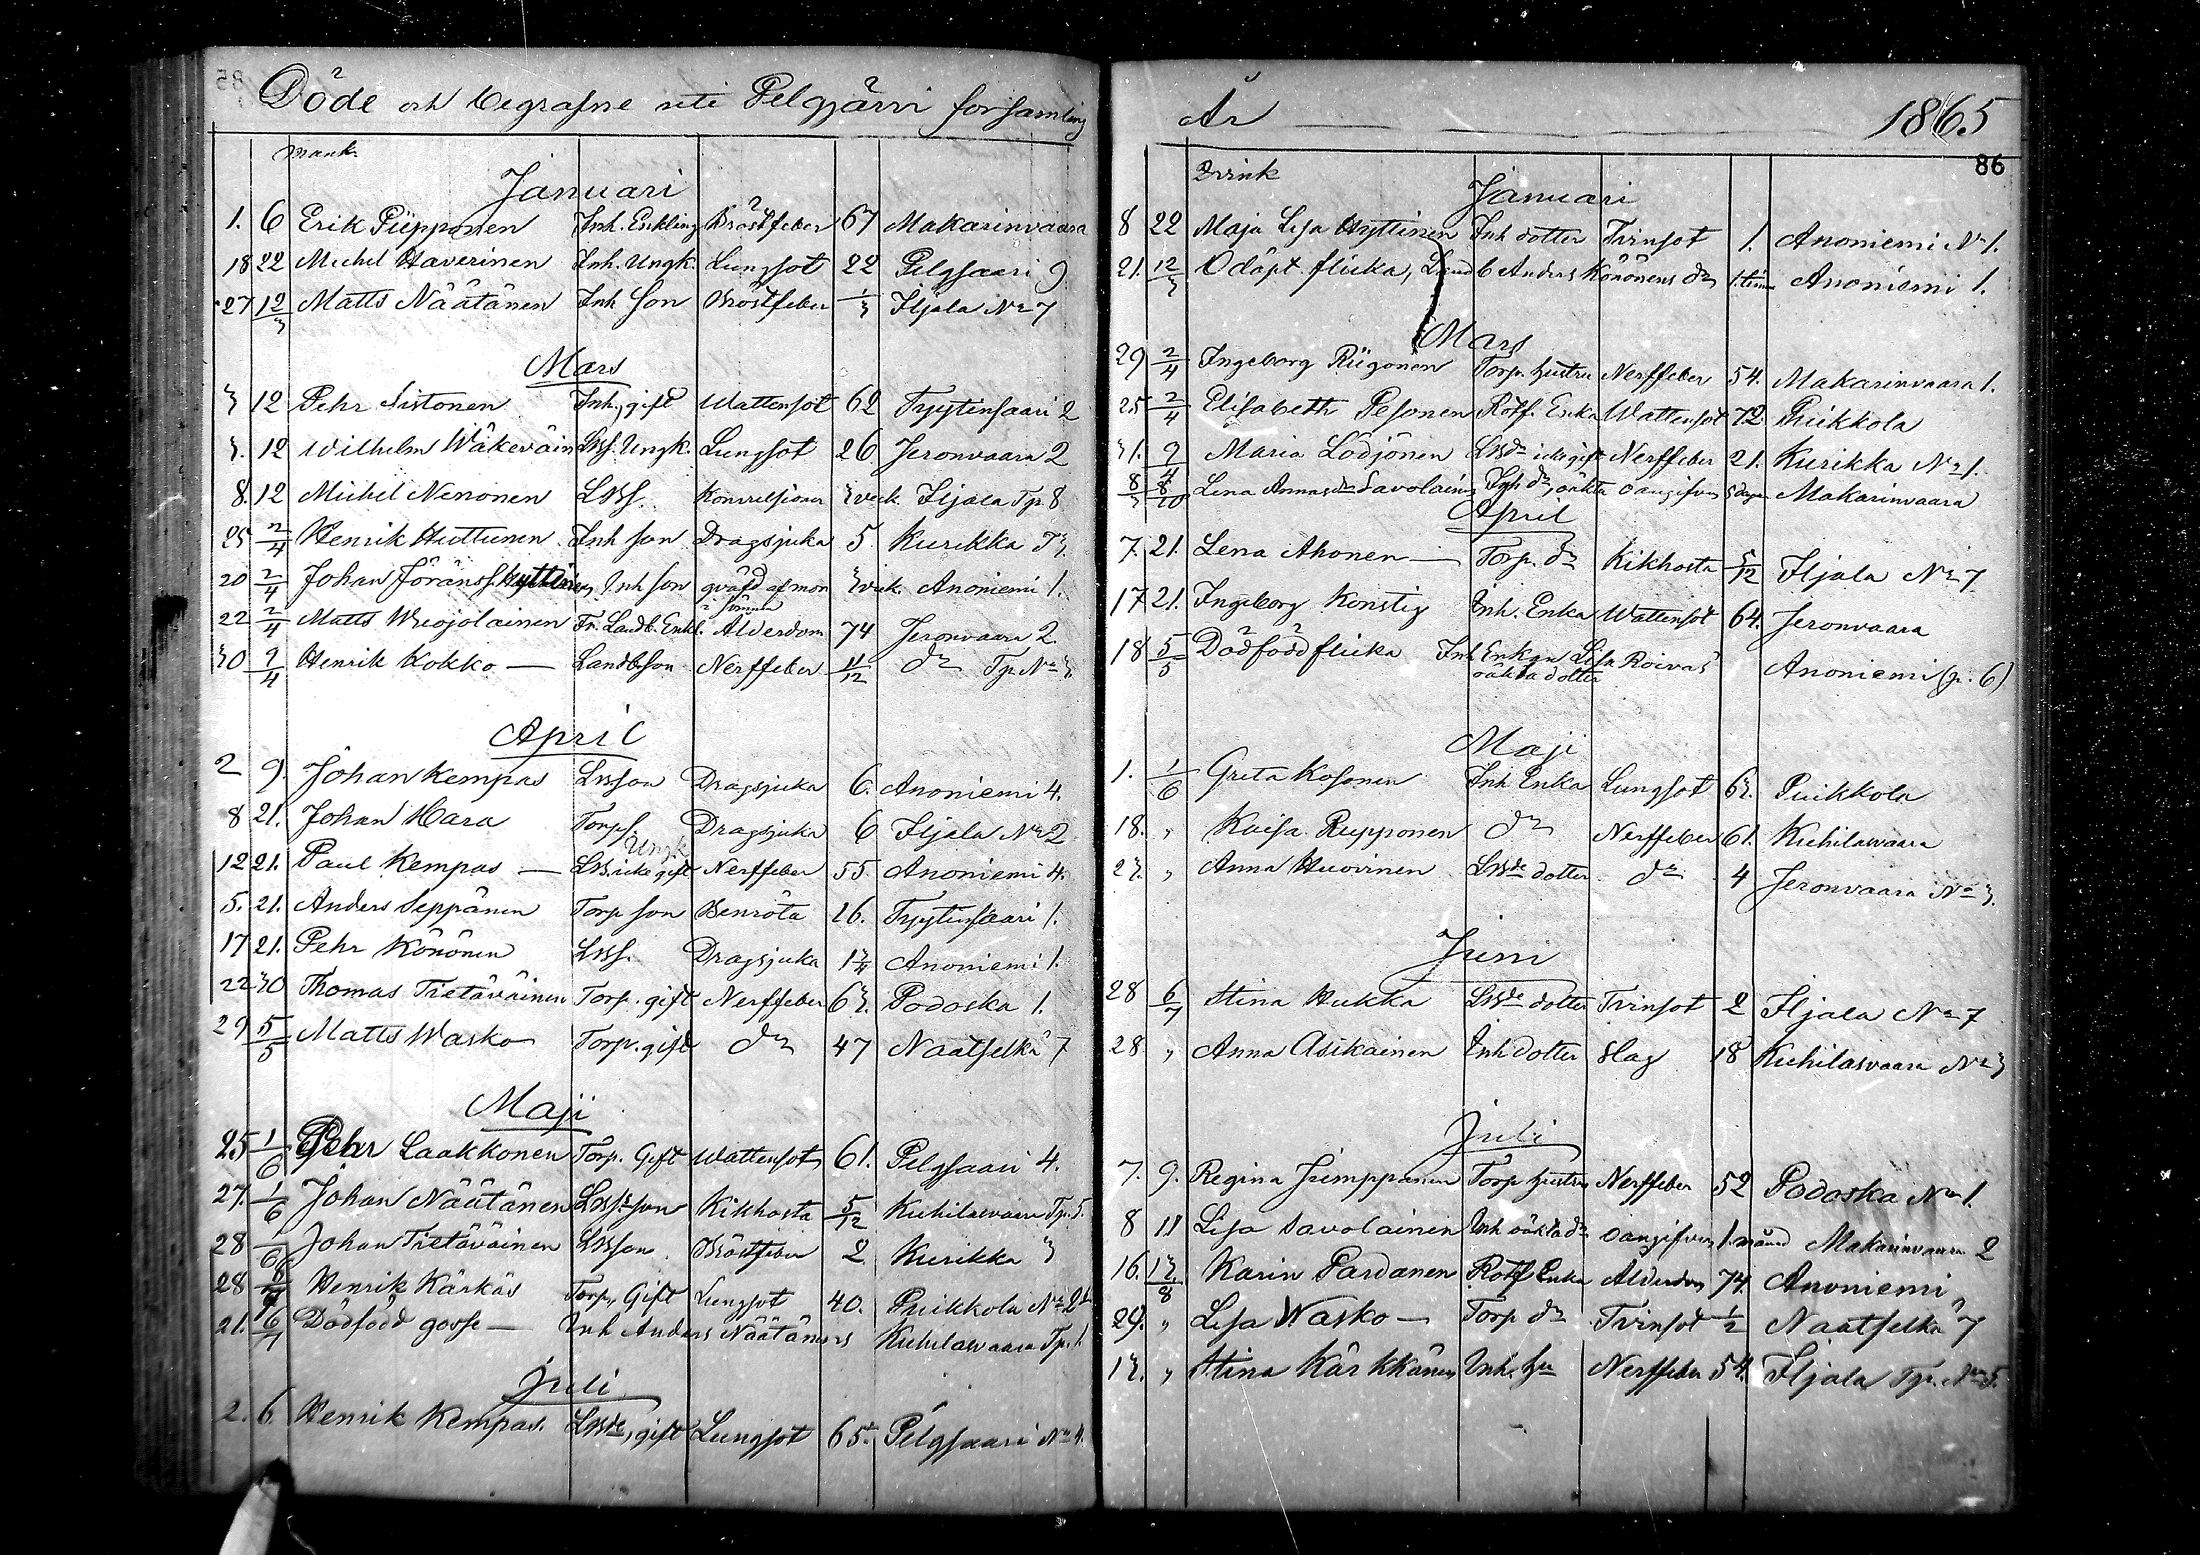 Döde och begrafne uti Pelgjärvi församling
mank.
Januari
1. 6 Erik Piipponen Inh. Enkling Bröstfeber 67 Makarinvaara
18 22 Michel Haverinen Inh. Ungk. Lungsot 22 Pelgsaari 9
27 12/3 Matts Näätänen Inh Son Bröstfeber 1/3 Iljala No 7
Mars
3 12 Pehr Sistonen Inh., gift Wattensot 62 Tyytinsaari 2
3. 12 Wilhelm Wäkeväin LBS. Ungk. Lungsot 26 Jeronvaara 2
8. 12 Michel Nenonen LBS. Konvulsioner 3 veck. Iljala Tp. 8
25 2/4 Henrik Huttunen Inh son Dragsjuka 5 Kurikka T 3.
20 2/4 Johan Hyttinen Inh son qväfd af mon 3 vick. Anoniemi 1.
i sömn
22 2/4 Matts Wriojolainen Fr. Landb. Enkl. Ålderdom 74 Jeronvaara 2
30 9/4 Henrik Kokko — Landbson Nerffeber 11/12 do Tp. No 3
April
2 9. Johan Kempas LBson Dragsjuka 6. Anoniemi 4.
8 21. Johan Hara Torps. Dragsjuka 6 Iljala No 2
Ungk
12 21. Paul Kempas — LB. icke gift Nerffeber 55. Anoniemi 4.
5. 21. Anders Seppänen Torp son Benröta 16. Tyytinsaari 1.
17 21. Pehr Könönen LBS. Dragsjuka 1 3/4 Anoniemi 1.
22 30 Thomas Tietäväinen Torp. gift Nerffeber 63. Podoska 1.
29 5/5 Matts Wasko Torp. gift do 47 Naatselkä 7
Maji
25 1/6 Pehr Laakkonen Torp. Gift Wattensot 61. Pelgsaari 4.
27. 1/6 Johan Näätänen LBSson Kikhosta 5/12 Kuhilasvaara Tp. 5.
28 1/6 Johan Tietäväinen LBson Bröstfeber 2 Kurikka 3
28 Henrik Kärkäs Torp, Gift Lungsot 40. Puikkola No 2
21. 6/7 Dödfödd gosse — Inh Anders Näätänens Kuhilasvaara Tp. 1
Juli
2. 6. Henrik Kempas. LBde, gift Lungsot 65. Pelgsaari No 4.
År 1865
86
Qvink
Januari
8 22 Maja Lisa Hyttinen Inh dotter Tvinsot 1. Anoniemi No 1.
21. 12/3 Odöpt flicka, Landb Anders Könönens do 1. timm Anoniemi 1.
Mars
29 2/4 Ingeborg Riigonen Torp. hustru Nerffeber 54. Makarinvaara 1.
25 2/4 Elisabeth Pesonen Rotf. Enka Wattensot 72. Puikkola
31. 9/4 Maria Lödjönen LBde icke gift Nerffeber 21. Kurikka No 1.
8/3 Lena Annasdr Savolainen Inh dr, oäkta oangifven 5 dagar Makarinvaara
April
7. 21. Lena Ahonen — Torp. dr Kikhosta 5/12 Iljala No 7
17 21. Ingeborg Konstig Inh. Enka Wattensot 64. Jeronvaara
18 5/5 Dödfödd flicka Inh Enkan Lisa Roivas Anoniemi (p. 6)
oäkta dotter
Maji
1. 1/6 Greta Kosonen Inh Enka Lungsot 63. Puikkola
18. " Kaisa Rupponen do Nerffeber 61. Kuhilasvaara
23. " Anna Huovinen LBde dotter do 4 Jeronvaara No 3.
Juni
28 6/7 Stina Hukka LBde dotter Tvinsot 2 Iljala No 7
28 " Anna Asikainen Inh dotter Slag 18 Kuhilasvaara No 3
Juli
7. 9. Regina Jumpponen Torp hustru Nerffeber 52 Podoska No 1.
8 11 Lisa Savolainen Inh oäkta dr oangifven 1. månad Makarinvaara 2
16. 13/8 Karin Pardanen Rotf Enka Ålderdom 74. Anoniemi
29. " Lisa Wasko — Torp dr Tvinsot 1/2 Naatselkä 7
13. " Stina Kärkkäinen Inh. hu Nerffeber 54. Iljala Tp. No 5.